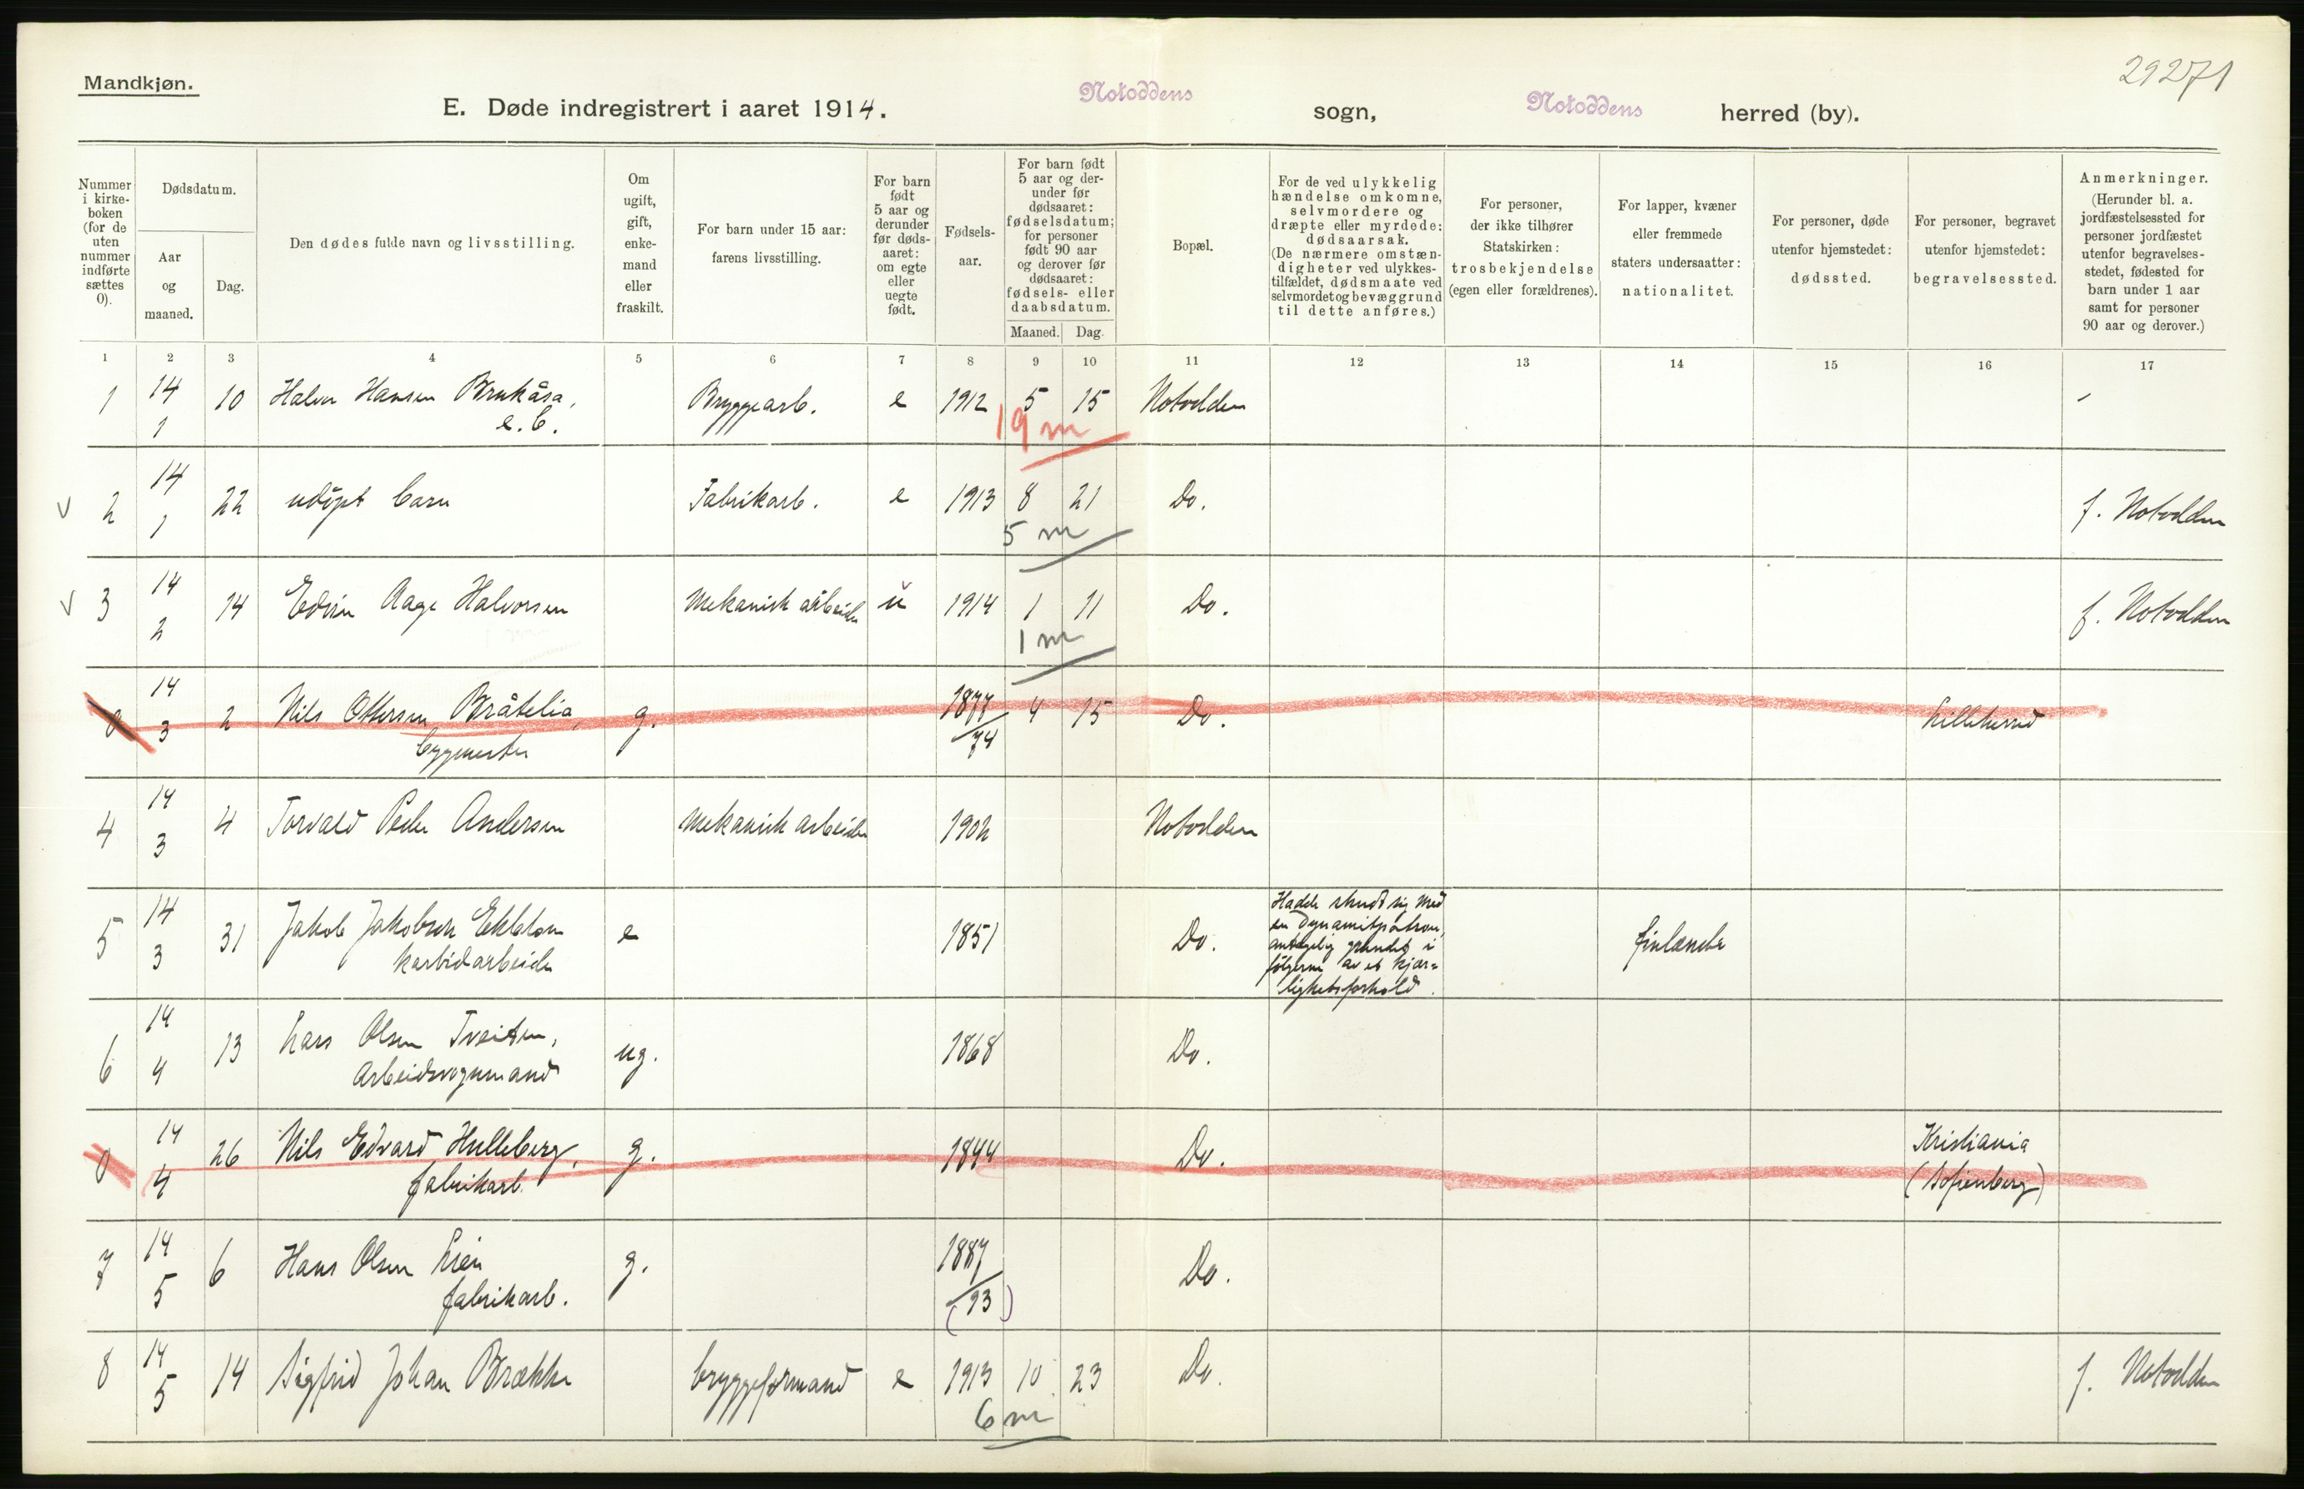 Mandkjøn.
29271
E. Døde indregistrert i aaret 1914. Notoddens sogn, Notoddens herred (by).
Nummer i kirke-boken (for de uten nummer indførte sættes 0).
Dødsdatum.
Aar og maaned.
Dag.
Den dødes fulde navn og livsstilling.
Om ugift, gift, enke-mand eller fraskilt.
For barn under 15 aar: farens livsstilling.
For barn født 5 aar og derunder før døds-aaret: om egte eller uegte født.
Fødsels-aar.
For barn født 5 aar og der-under før dødsaaret: fødselsdatum; for personer født 90 aar og derover før dødsaaret: fødsels- eller daabsdatum.
Maaned. Dag.
Bopæl.
For de ved ulykkelig hændelse omkomne, selvmordere og dræpte eller myrdede: dødsaarsak. (De nærmere omstæn-digheter ved ulykkes-tilfældet, dødsmaate ved selvmordet og bevæggrund til dette anføres.)
For personer, der ikke tilhører Statskirken: trosbekjendelse (egen eller forældrenes).
For lapper, kvæner eller fremmede staters undersaatter: nationalitet.
For personer, døde utenfor hjemstedet: dødssted.
For personer, begravet utenfor hjemstedet: begravelsessted.
Anmerkninger. (Herunder bl. a. jordfæstelsessted for personer jordfæstet utenfor begravelses-stedet, fødested for barn under 1 aar samt for personer 90 aar og derover.)
1 2 3 4 5 6 7 8 9 10 11 12 13 14 15 16 17
1 14 1 10 Halvor Hansen Brukåsa, e.b. Bryggearb. e 1912 5 15 Notodden
19 m
v 2 14 1 22 udöpt barn Fabrikarb. e 1913 8 21 Do. f. Notodden
5 m
v 3 14 2 14 Edvin Aage Halvorsen Mekanisk arbeider u 1914 1 11 Do. f. Notodden
1 m
0 14 3 2 Nils Ottersen Bråtelia, byggmester g. 1877/74 4 15 Do. Lilleherred
4 14 3 4 Torvald Peder Andersen Mekanisk arbeider 1902 Notodden
5 14 3 31 Jakob Jakobsen karbidarbeider e 1851 Do. Hadde skudt sig med en dynamitpatron, antagelig grundet i følgerne av et kjær=lighetsforhold. finlender
6 14 4 13 Lars Olsen Tveiten, Arbeidsvognmand ug. 1868 Do.
0 14 4 26 Nils Edvard Hulleberg, fabrikarb. g. 1844 Do. Kristiania (Sofienberg)
7 14 5 6 Hans Olsen Lien fabrikarb. g. 1887/(93) Do.
8 14 5 14 Sigfrid Johan Brække bryggeformand e 1913 10 23 Do. f. Notodden
6 m